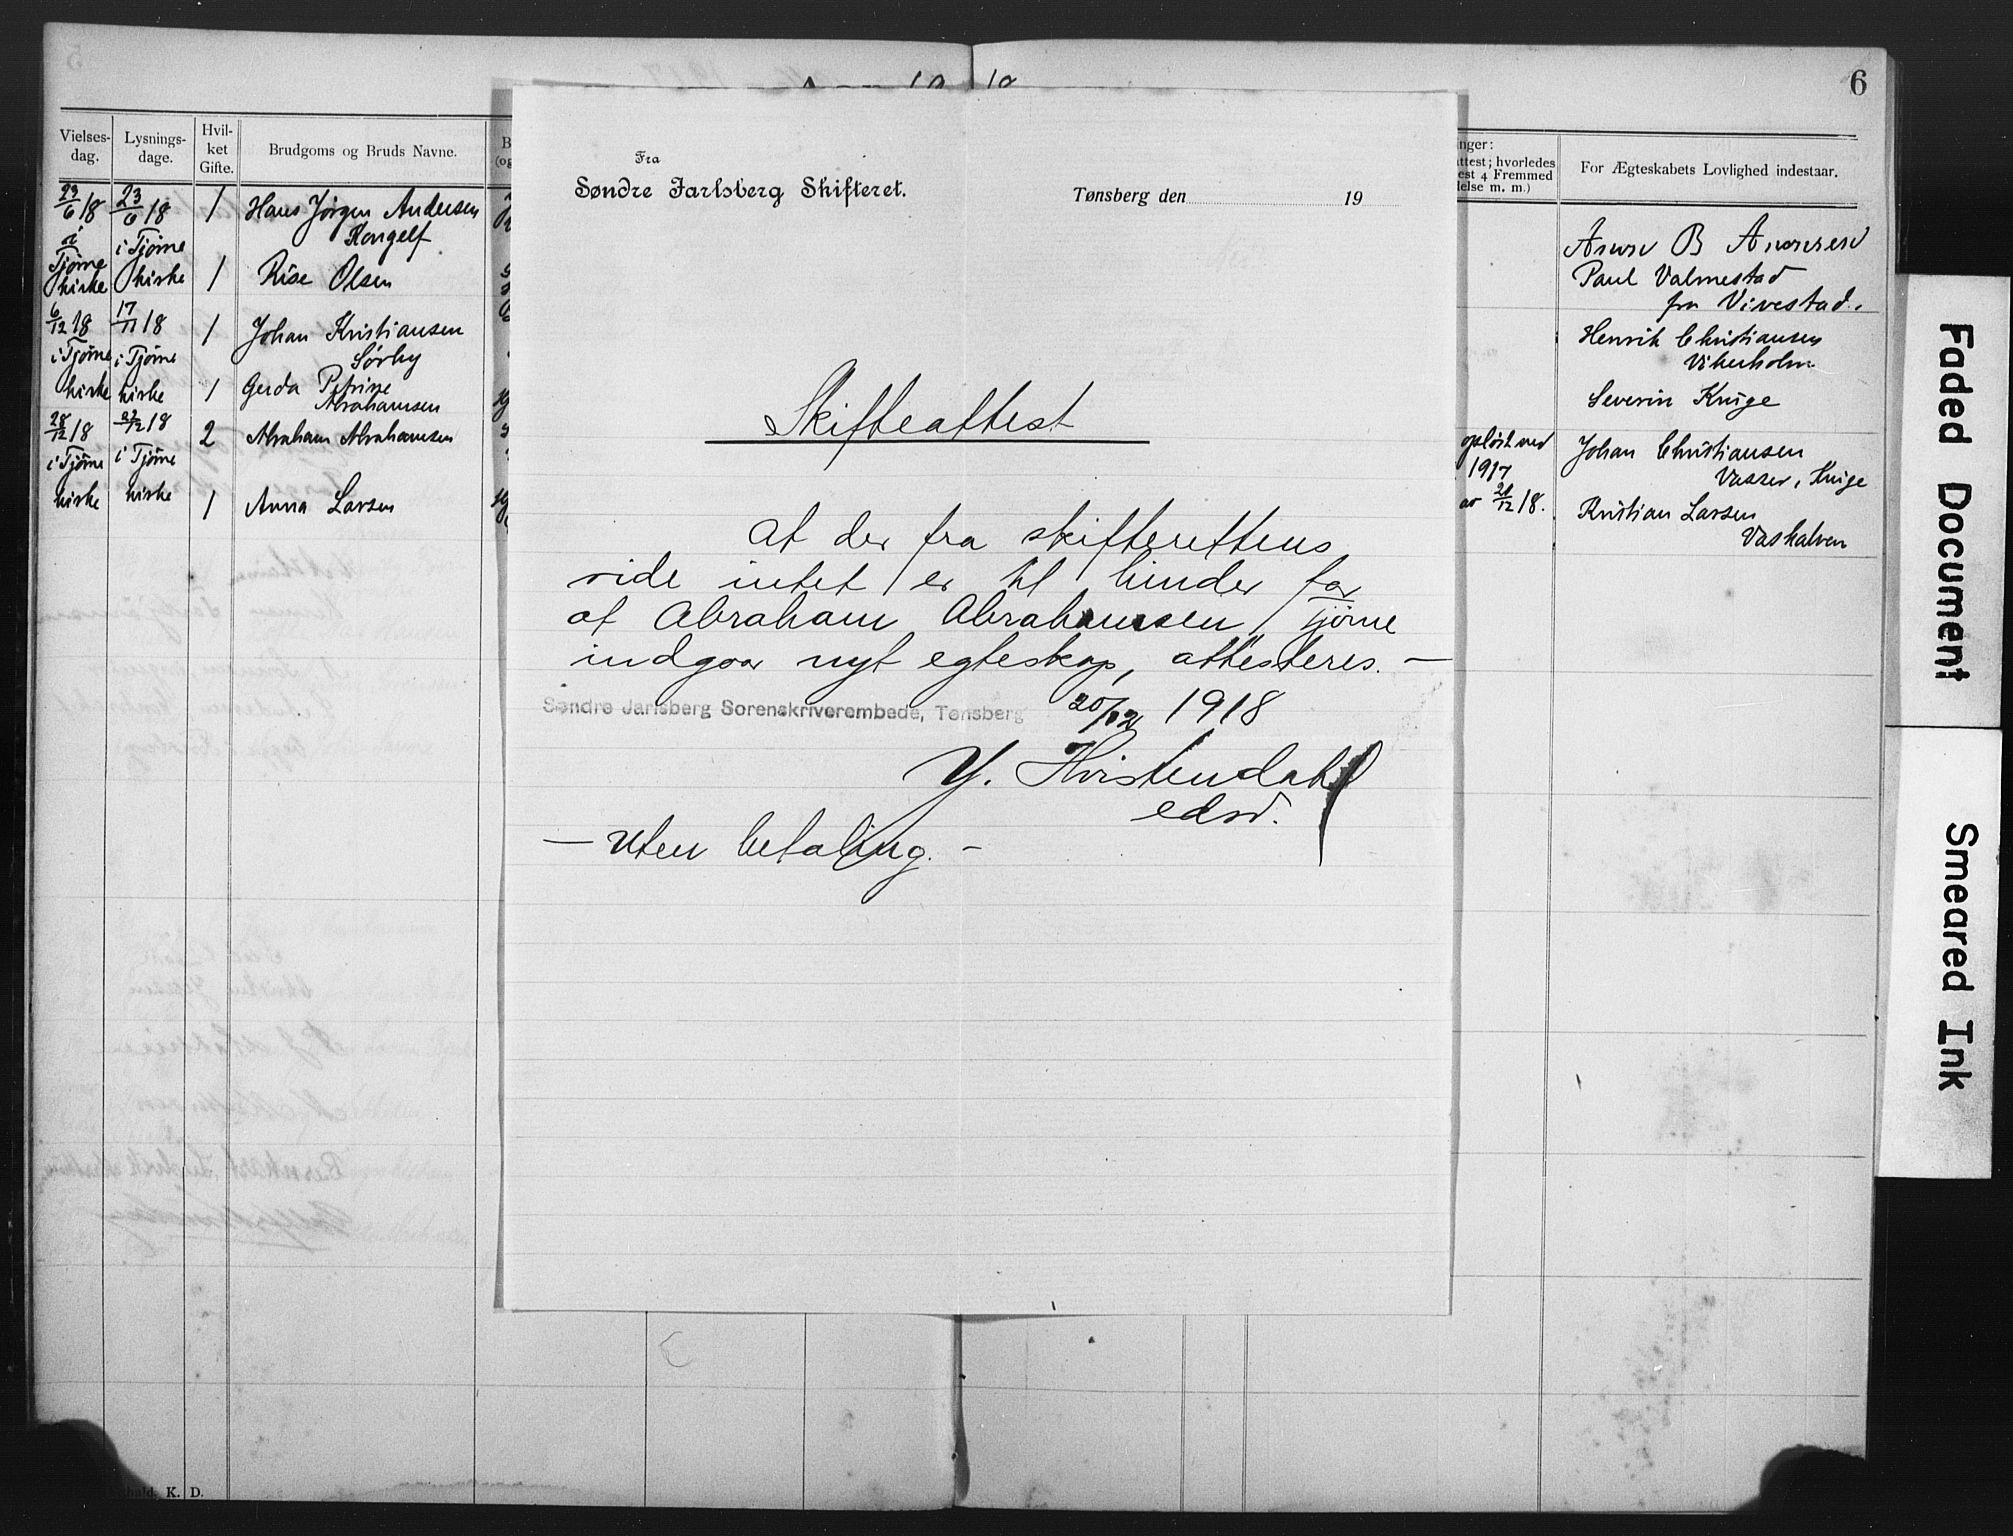 6
Vielses-
dag.
Lysnings-
dage.
Hvil-
ket
Gifte.
Brudgoms og Bruds Navne.
23/6 18
i
Tjöme
kirke
23/6 18
i Tjöme
kirke
1
Hans Jörgen Andersen
1
Olsen
6/12 18
i Tjöme
kirke
17/11 18
i Tjöme
kirke
1
Johan Kristiansen
Sörby
1
Gerda Petrine
Abrahamsen
28/12 18
i Tjöme
kirke
22/12 18
i Tjöme
kirke
2
Abraham Abrahamsen
1
Anna Larsen
Fra
Søndre Jarlsberg Skifteret.
Tønsberg den 19
Skifteattest
At der fra skifterettens
side intet er til hinder for
at Abraham Abrahamsen, Tjöme
indgaar nyt egteskap, attesteres. —
Søndre Jarlsberg Sorenskriverembede, Tønsberg 20/12 1918
Y. Hvistendahl
edsv.
— Uten betaling. —
nger:
ttest; hvorledes
est 4 Fremmed
lelse m. m.)
opløst ved
1917
av 21/12 18.
For Ægteskabets Lovlighed indestaar.
B
Paul Valmestad
fra Vivestad.
Henrik Christiansen
Severin Kruge
Johan Christiansen
Vasser, Kruge
Kristian Larsen
Vaskalven
K. D.
Faded Document
Smeared Ink